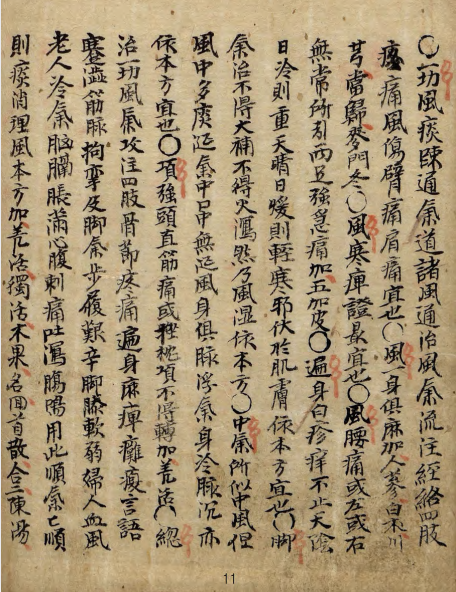 〇一切風痰踈通氣道諸風通治風氣流注經絡四肢
痠痛風傷臂痛肩痛宜也〇風一身俱麻加人參白朮川
芎當歸麥門冬〇風寒痺證最宜也〇風腰痛或左或右
無常所引兩足強急痛加五加皮〇遍身白疹痒不止天陰
日冷則重天晴日暖則輕寒邪伏於肌膚依本方宜也〇脚
氣治不得大補不得大瀉然乃風湿依本方〇中氣所似中風但
風中多痰涎氣中口中無涎風身俱脉浮氣身冷脉沉亦
依本方宜也〇項強頭直筋痛或挫枕項不得轉加羌活〇總
治一切風氣攻注四肢骨節疼痛遍身麻痺癱瘓言語
蹇澁筋脉拘攣及脚氣步履艱辛脚膝軟弱婦人血風
老人冷氣胸膈脹滿心腹刺痛吐瀉膓鳴用此順氣氣順
則痰消理風本方加羌活獨活木果名回首散合二陳湯
11